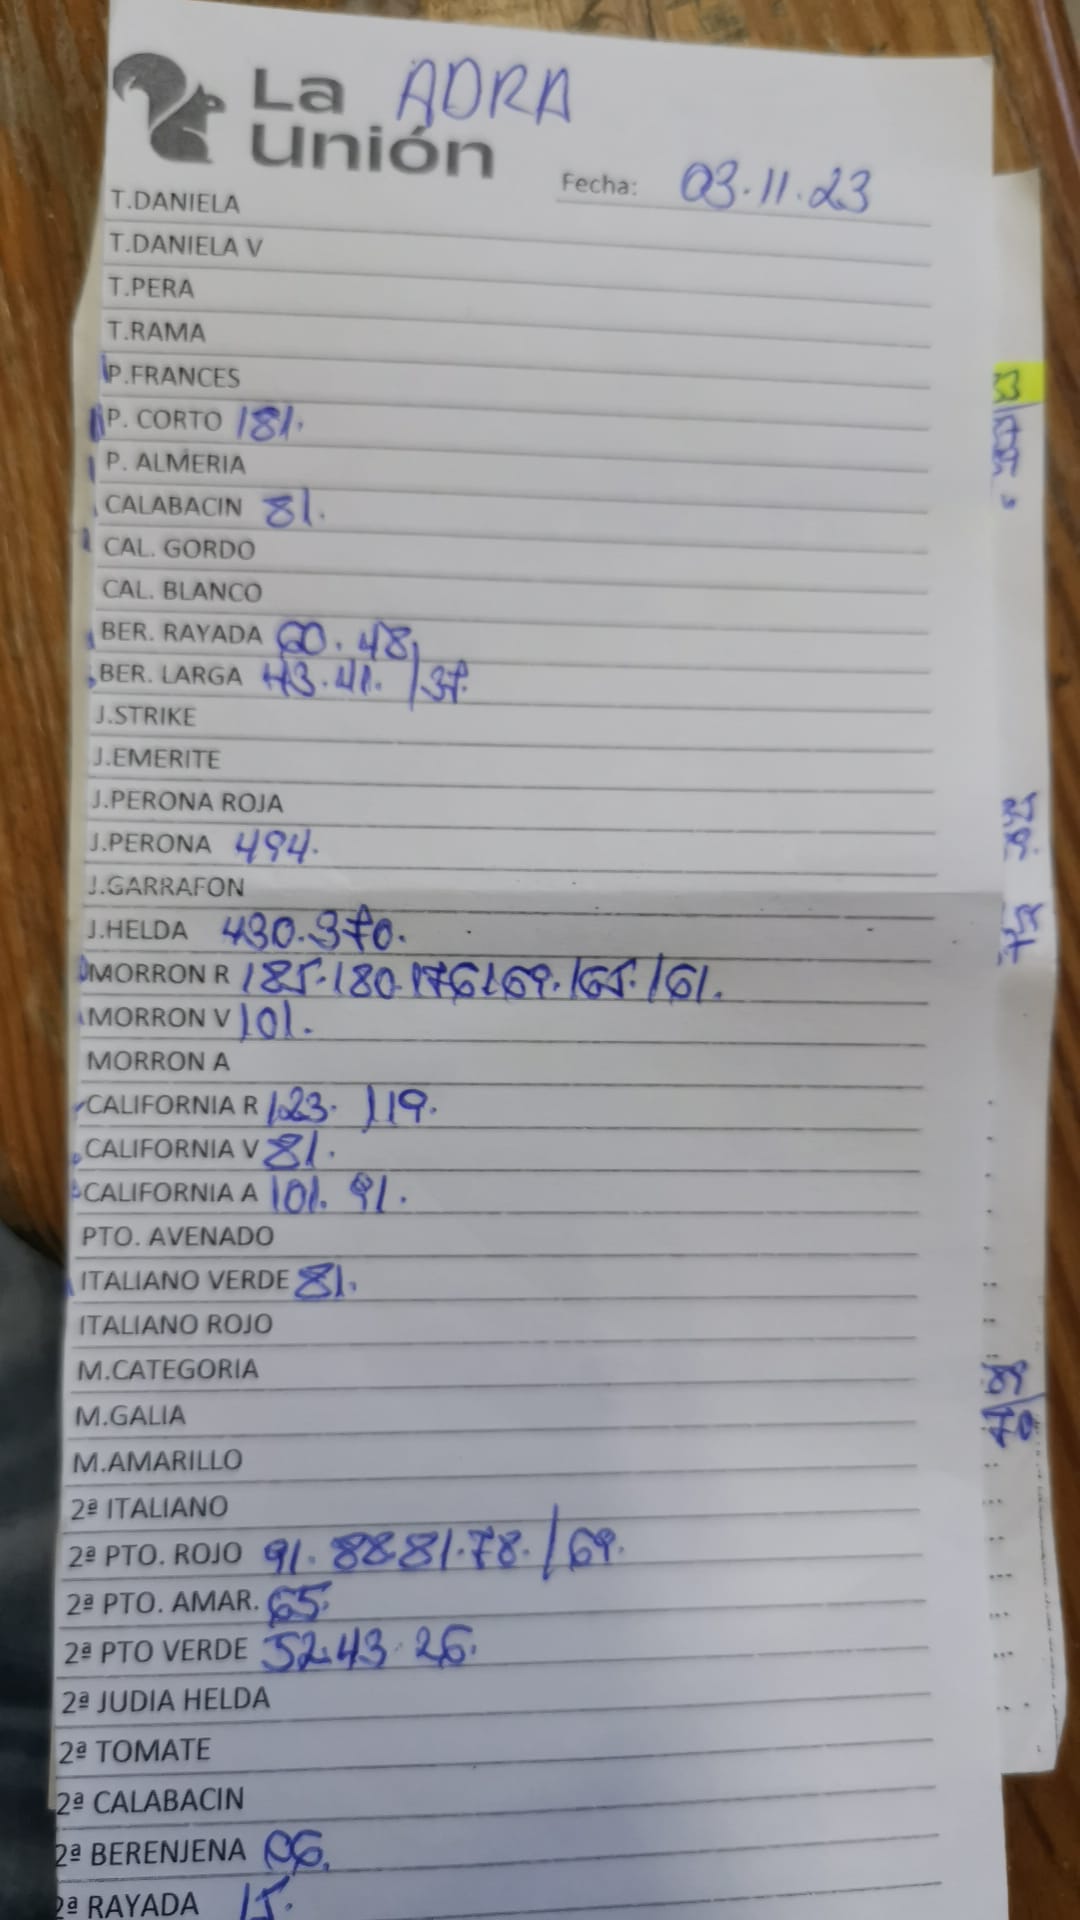 La Unión ADRA
Fecha: 03.11.23
T.DANIELA
T.DANIELA V
T.PERA
T.RAMA
P.FRANCES
P. CORTO 181.
P. ALMERIA
CALABACIN 81.
CAL. GORDO
CAL. BLANCO
BER. RAYADA 60. 48
BER. LARGA 43.41. /37.
J.STRIKE
J.EMERITE
J.PERONA ROJA
J.PERONA 494.
J.GARRAFON
J.HELDA 430.370.
MORRON R 185.180.176.169.165.161.
MORRON V 101.
MORRON A
CALIFORNIA R 123. 119.
CALIFORNIA V 81.
CALIFORNIA A 101. 91.
PTO. AVENADO
ITALIANO VERDE 81.
ITALIANO ROJO
M.CATEGORIA
M.GALIA
M.AMARILLO
2ª ITALIANO
2ª PTO. ROJO 91. 88.81.78. /69.
2ª PTO. AMAR. 65.
2ª PTO VERDE 52.43.26.
2ª JUDIA HELDA
2ª TOMATE
2ª CALABACIN
2ª BERENJENA
2ª RAYADA 15.